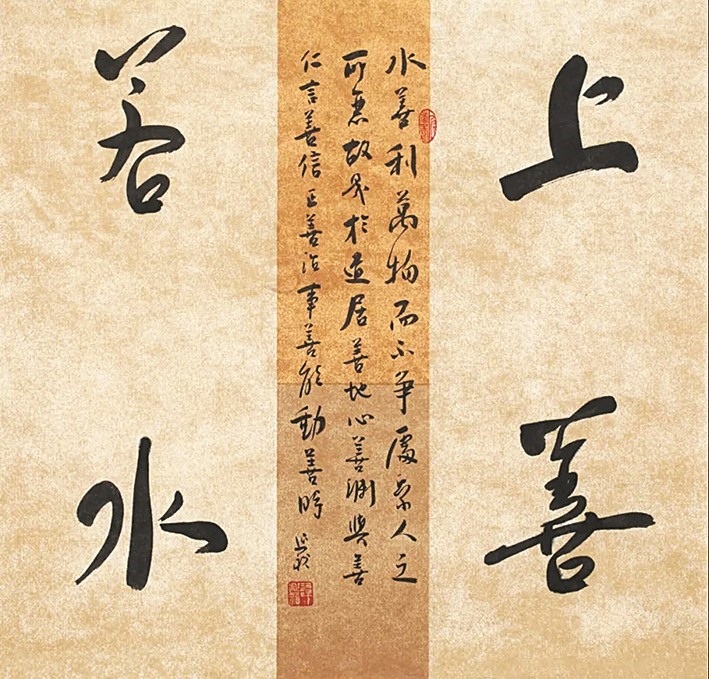 上善
水善利萬物而不争處衆人之
所惡故幾於道居善地心善渊與善
仁言善信正善治事善能動善時
若水